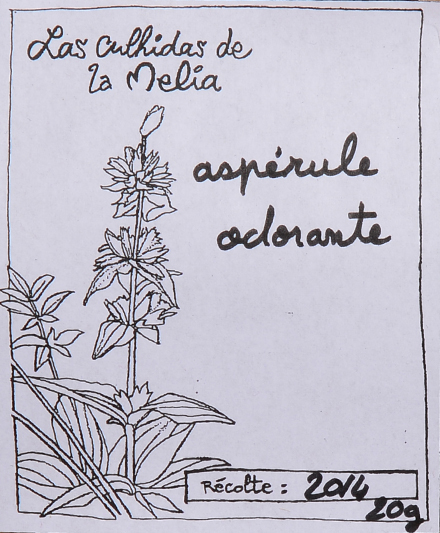 Las culhidas de
la Melia
aspérule
odorante
Récolte : 2014
20g